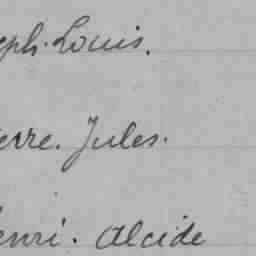 eph. Louis.
erre. Jules.
enri. Alcide